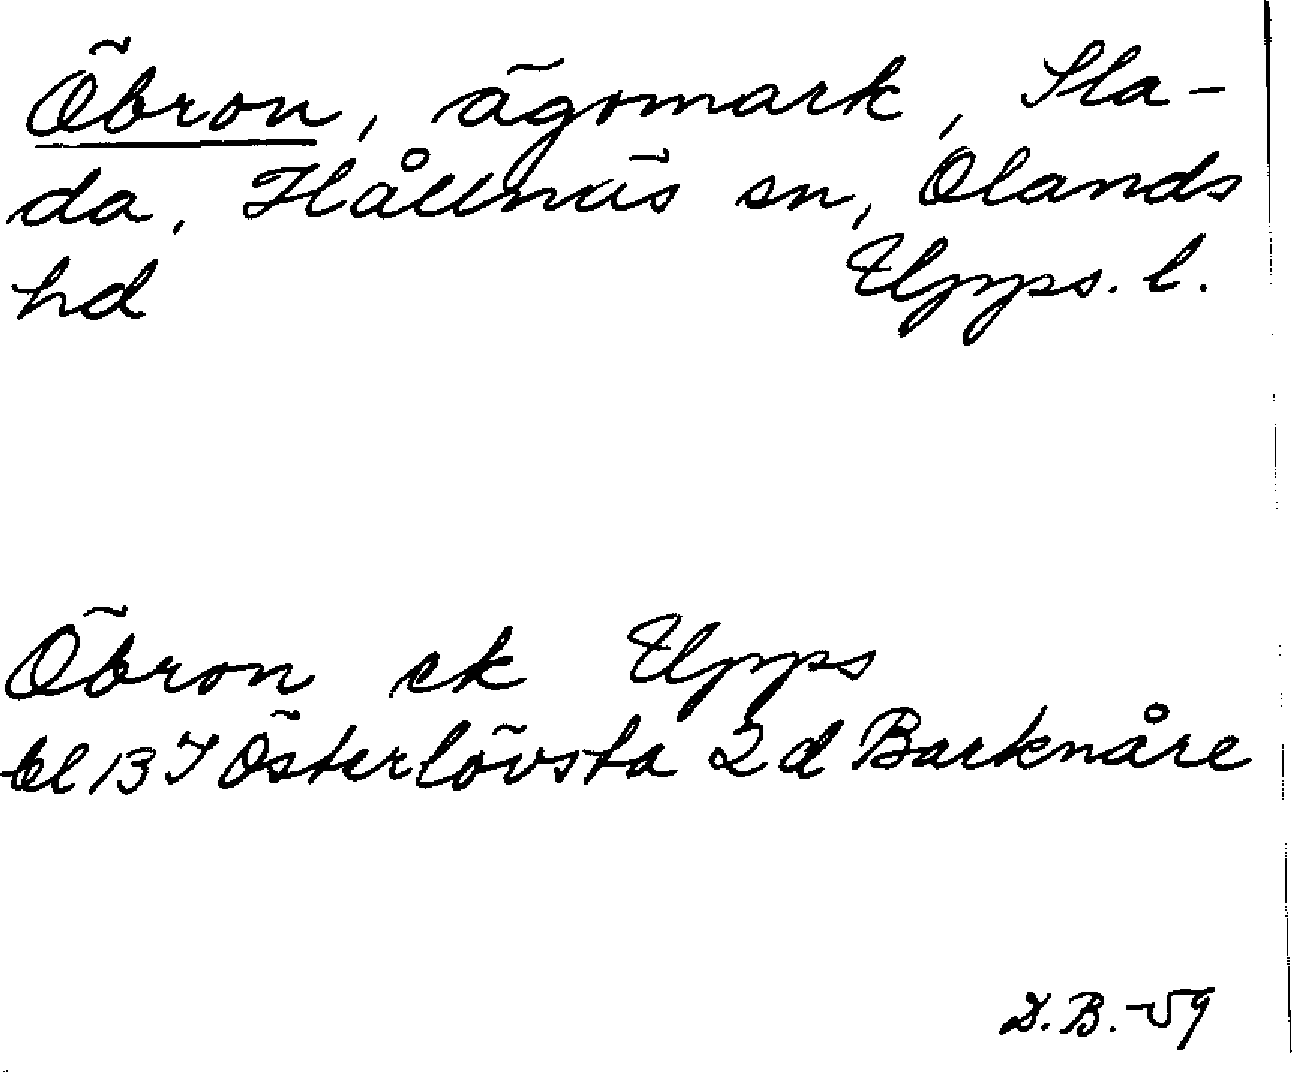 Öbron, ägomark, Sla-
da, Hållnäs sn, Olands
hd Upps. l.
Öbron ek Upps
bl 13 I Österlövsta 2 d Barknåre
D.B.-59